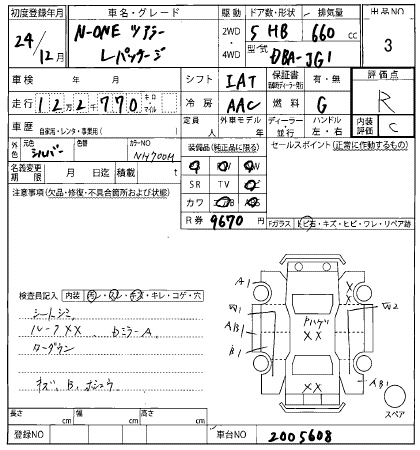 初度登録年月 車名・グレード 駆動 ドア数・形状 排気量 出品NO
24/12月 N-ONE ツアラー Lパッケージ 2WD 4WD 5 HB 660 cc 3
型式 DBA-JG1
車検 年 月 シフト IAT 保証書 有・無 評価点
走行 12万2千770 キロ・マイル 冷房 AAC 燃料 G R
車歴 自家用・レンタ・事業用( ) 定員 人 外車モデル 年 ディーラー・並行 ハンドル 左・右 内装評価 C
外色 元色 シルバー 色替 カラーNO NH700M 装備品(純正品に限る) セールスポイント(正常に作動するもの)
名義変更期限 月 日迄 積載 t SR TV ナビ
注意事項(欠品・修復・不具合箇所および状態) カワ エアB
R券 9670 Fガラス トビ石・キズ・ヒビ・ワレ・リペア跡
検査員記入 内装 汚レ・スレ・キズ・キレ・コゲ・穴
シートシミ
ルーフXX、むミラーA、
ターダウン
キズ、B、ホシュウ
A1 XX
W1 W2
AB1 Pハゲ XX
B1
XX AB1
スペア
長さ cm 幅 cm 高さ cm
登録NO 車台NO 2005608